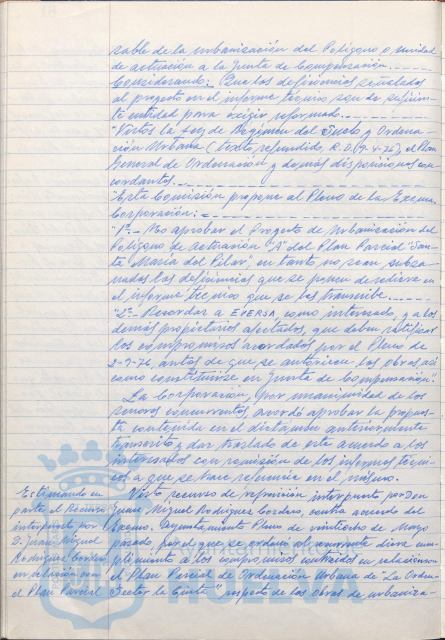 sable de la urbanización del Polígono o unidad
de actuación a la Junta de Compensación.
Considerando: Que las deficiencias señaladas
al proyecto en el informe técnico son de suficien-
te entidad para exigir reformado.
"Vistos la Ley de Regimen del Suelo y Ordena-
ción Urbana (texto refundido, R.D. 9-4-76), el Plan
General de Ordenación y demás disposiciones con-
cordantes.
"Esta Comisión propone al Pleno de la Excma.
Corporación:
"1º.- No aprobar el Proyecto de Urbanización del
Polígono de actuación "A" del Plan Parcial "San-
ta María del Pilar", en tanto no sean subsa-
nadas las deficiencias que se ponen de relieve en
el informe técnico que se les transcribe.
"2º.- Recordar a EVERSA como interesado, y a los
demás propietarios afectados, que deben ratificar
los compromisos acordados por el Pleno de
2-9-76, antes de que se autoricen las obras, así
como constituirse en Junta de Compensación".
La Corporación, por unanimidad de los
senores concurrentes, acordó aprobar la propues-
ta contenida en el dictamen anteriormente
transcrito y dar traslado de este acuerdo a los
interesados con remisión de los informes técni-
cos a que se hace referencia en el mismo.
Estimando en
parte el Recurso
interpuesto por
D. Juan Miguel
Rodríguez Cordero
en relación con
el Plan Parcial
Visto recurso de reposición interpuesto por Don
Juan Miguel Rodríguez Cordero, contra acuerdo del
Excmo. Ayuntamiento Pleno de veintiocho de Mayo
pasado por el que se ordena al recurrente diera cum-
plimiento a los compromisos contraidos en relación con
el Plan Parcial de Ordenación Urbana de "La Orden
Sector la Cinta" respecto de las obras de urbaniza-
Ayuntamiento de
HUELVA